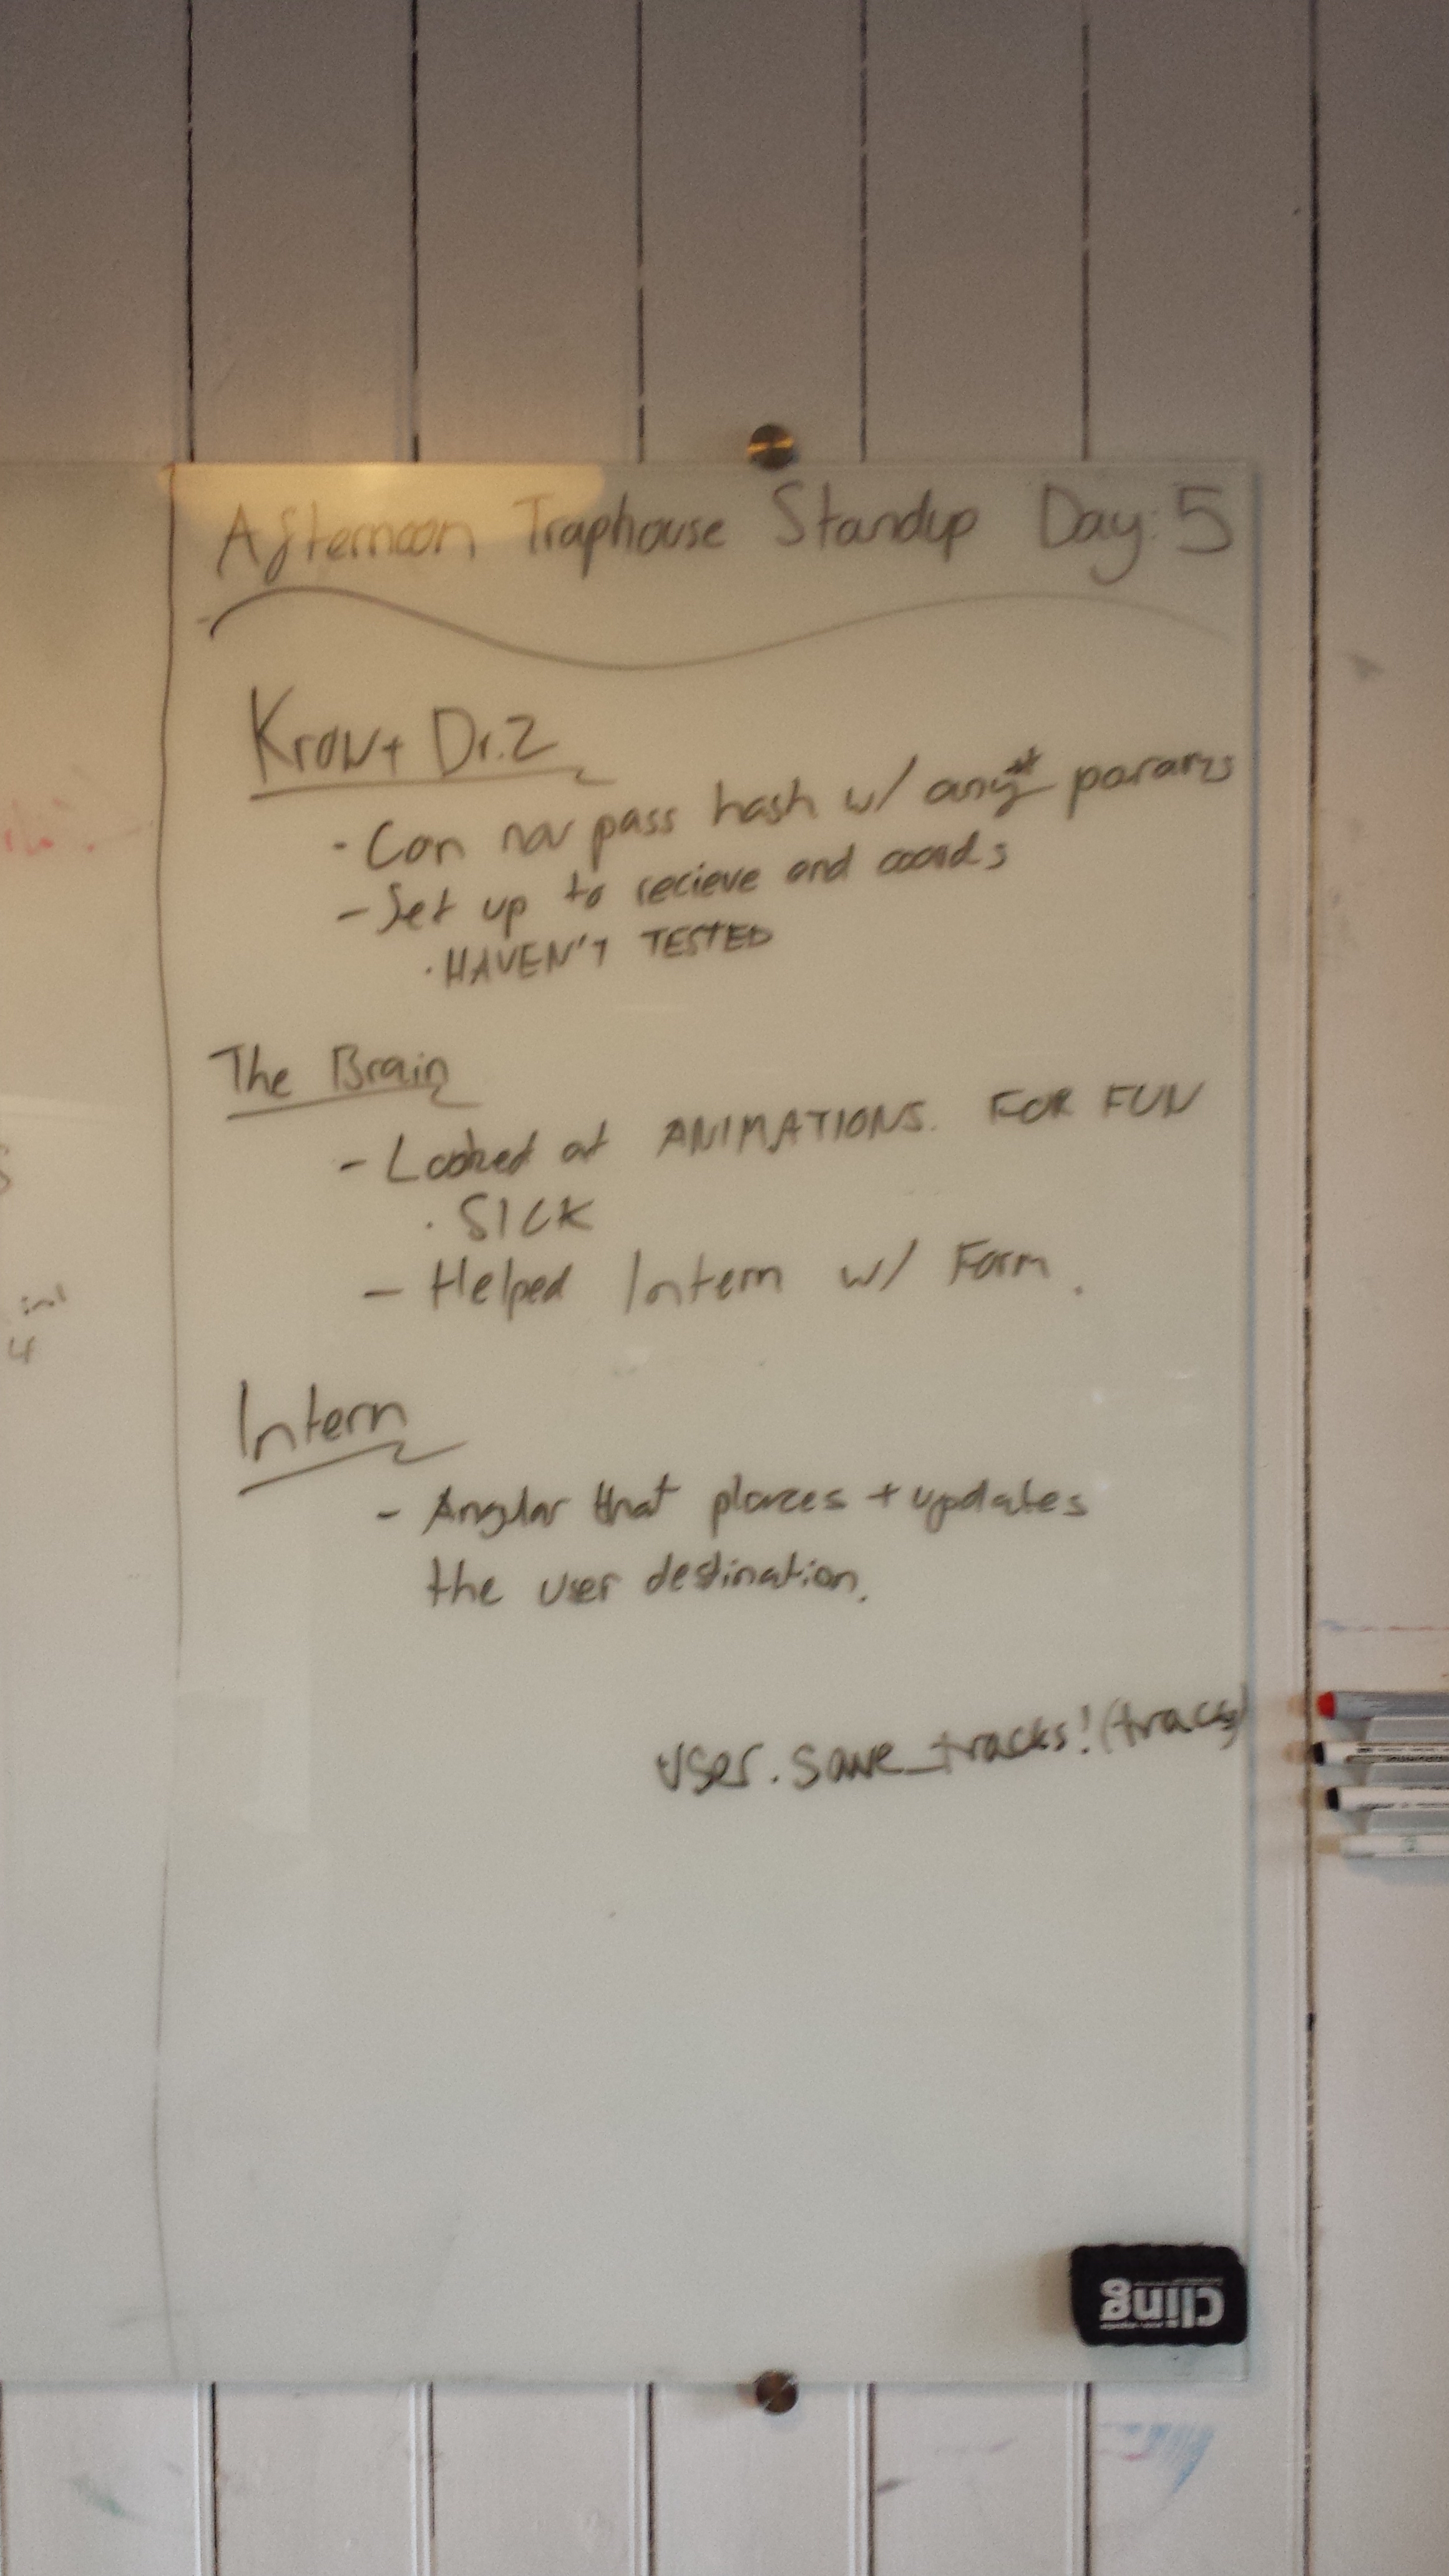 Afternoon Traphouse Standup Day: 5
Kron + Dr. Z
- Can now pass hash w/ any# params
- Set up to recieve end coords
· HAVEN'T TESTED
The Brain
- Looked at ANIMATIONS. FOR FUN
· SICK
- Helped Intern w/ Form.
Intern
- Angular that places + updates
the user destination.
user.save_tracks!(tracks)
Cling